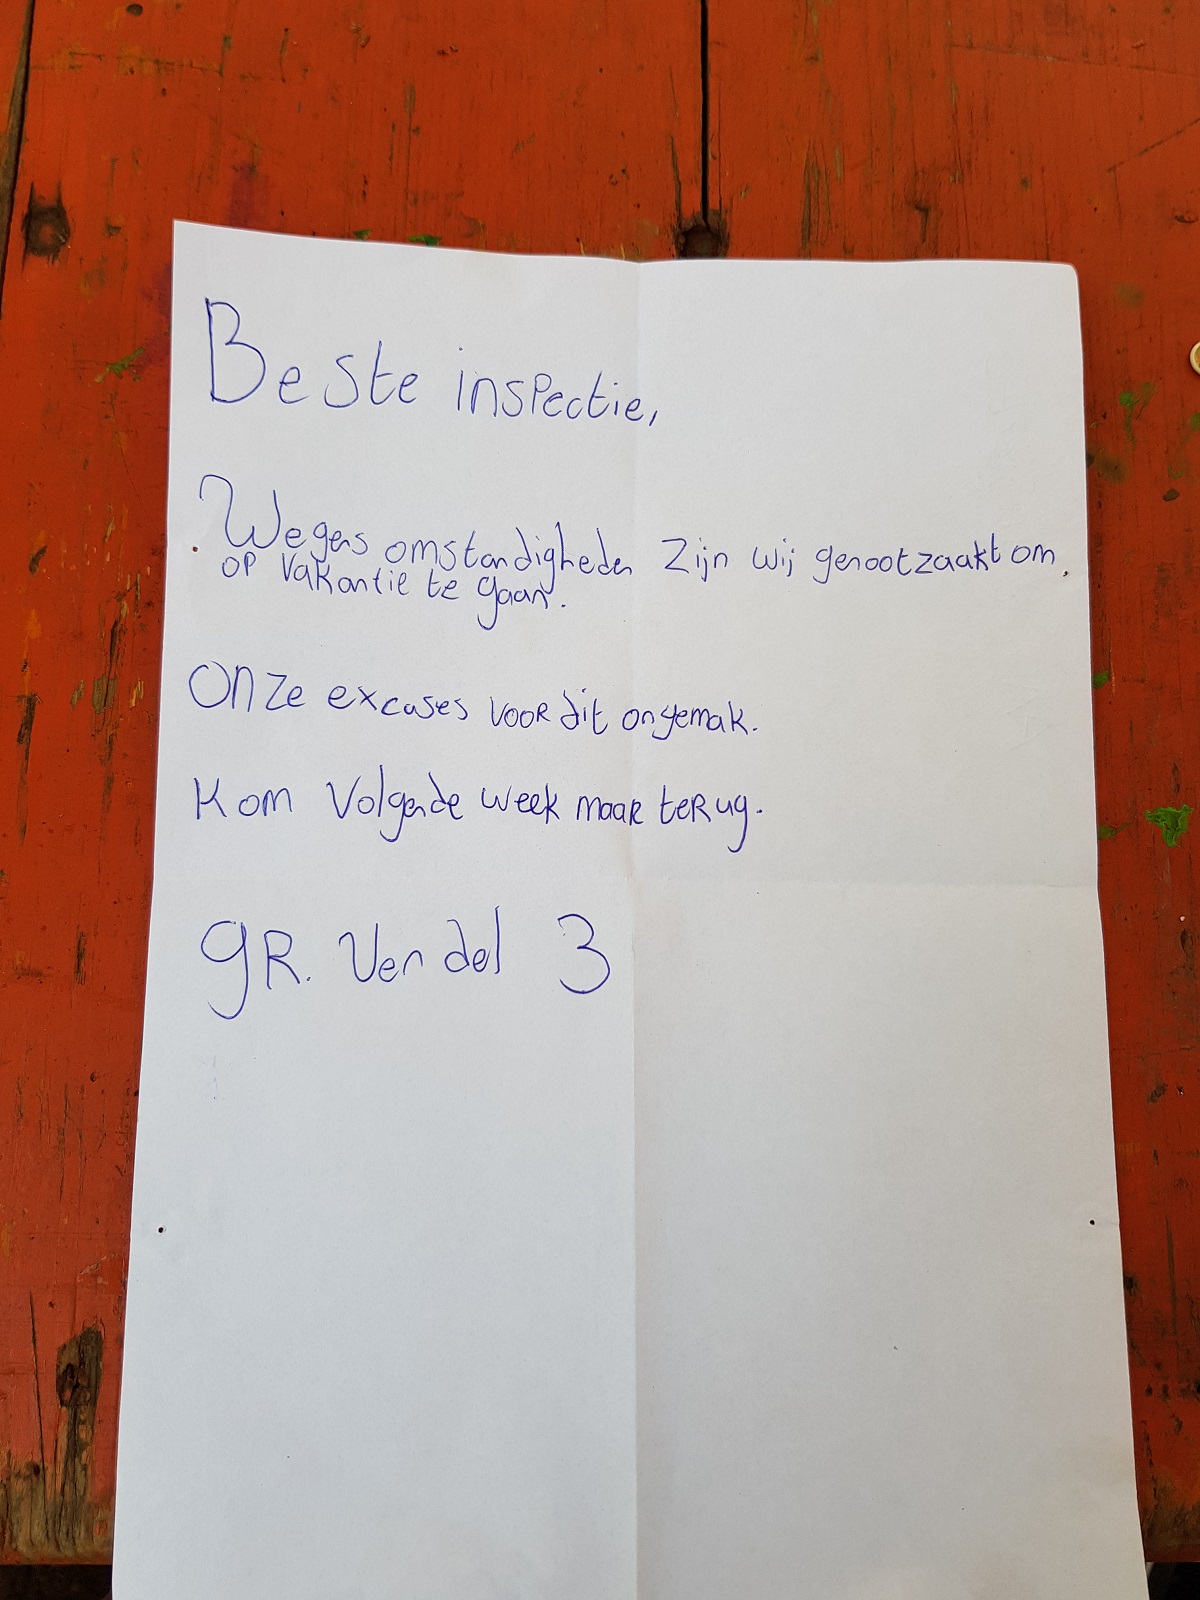 Beste inspectie,
Wegens omstandigheden zijn wij genootzaakt om
op vakantie te gaan.
Onze excuses voor dit ongemak.
Kom volgende week maar terug.
gr. Vendel 3